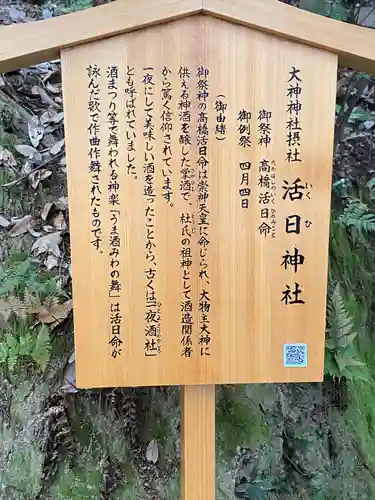 大神神社摂社
活日神社
いくひ
御祭神　高橋活日命
たかはしいくひのみこと
御例祭　四月四日
（御由緒）
御祭神の高橋活日命は崇神天皇に命じられ、大物主大神に
供える神酒を醸した掌酒で、杜氏の祖神として酒造関係者
から篤く信仰されています。
一夜にして美味しい酒を造ったことから、古くは「一夜酒社」
とも呼ばれていました。
酒まつり等で舞われる神楽「うま酒みわの舞」は活日命が
詠んだ歌で作曲作舞されたものです。